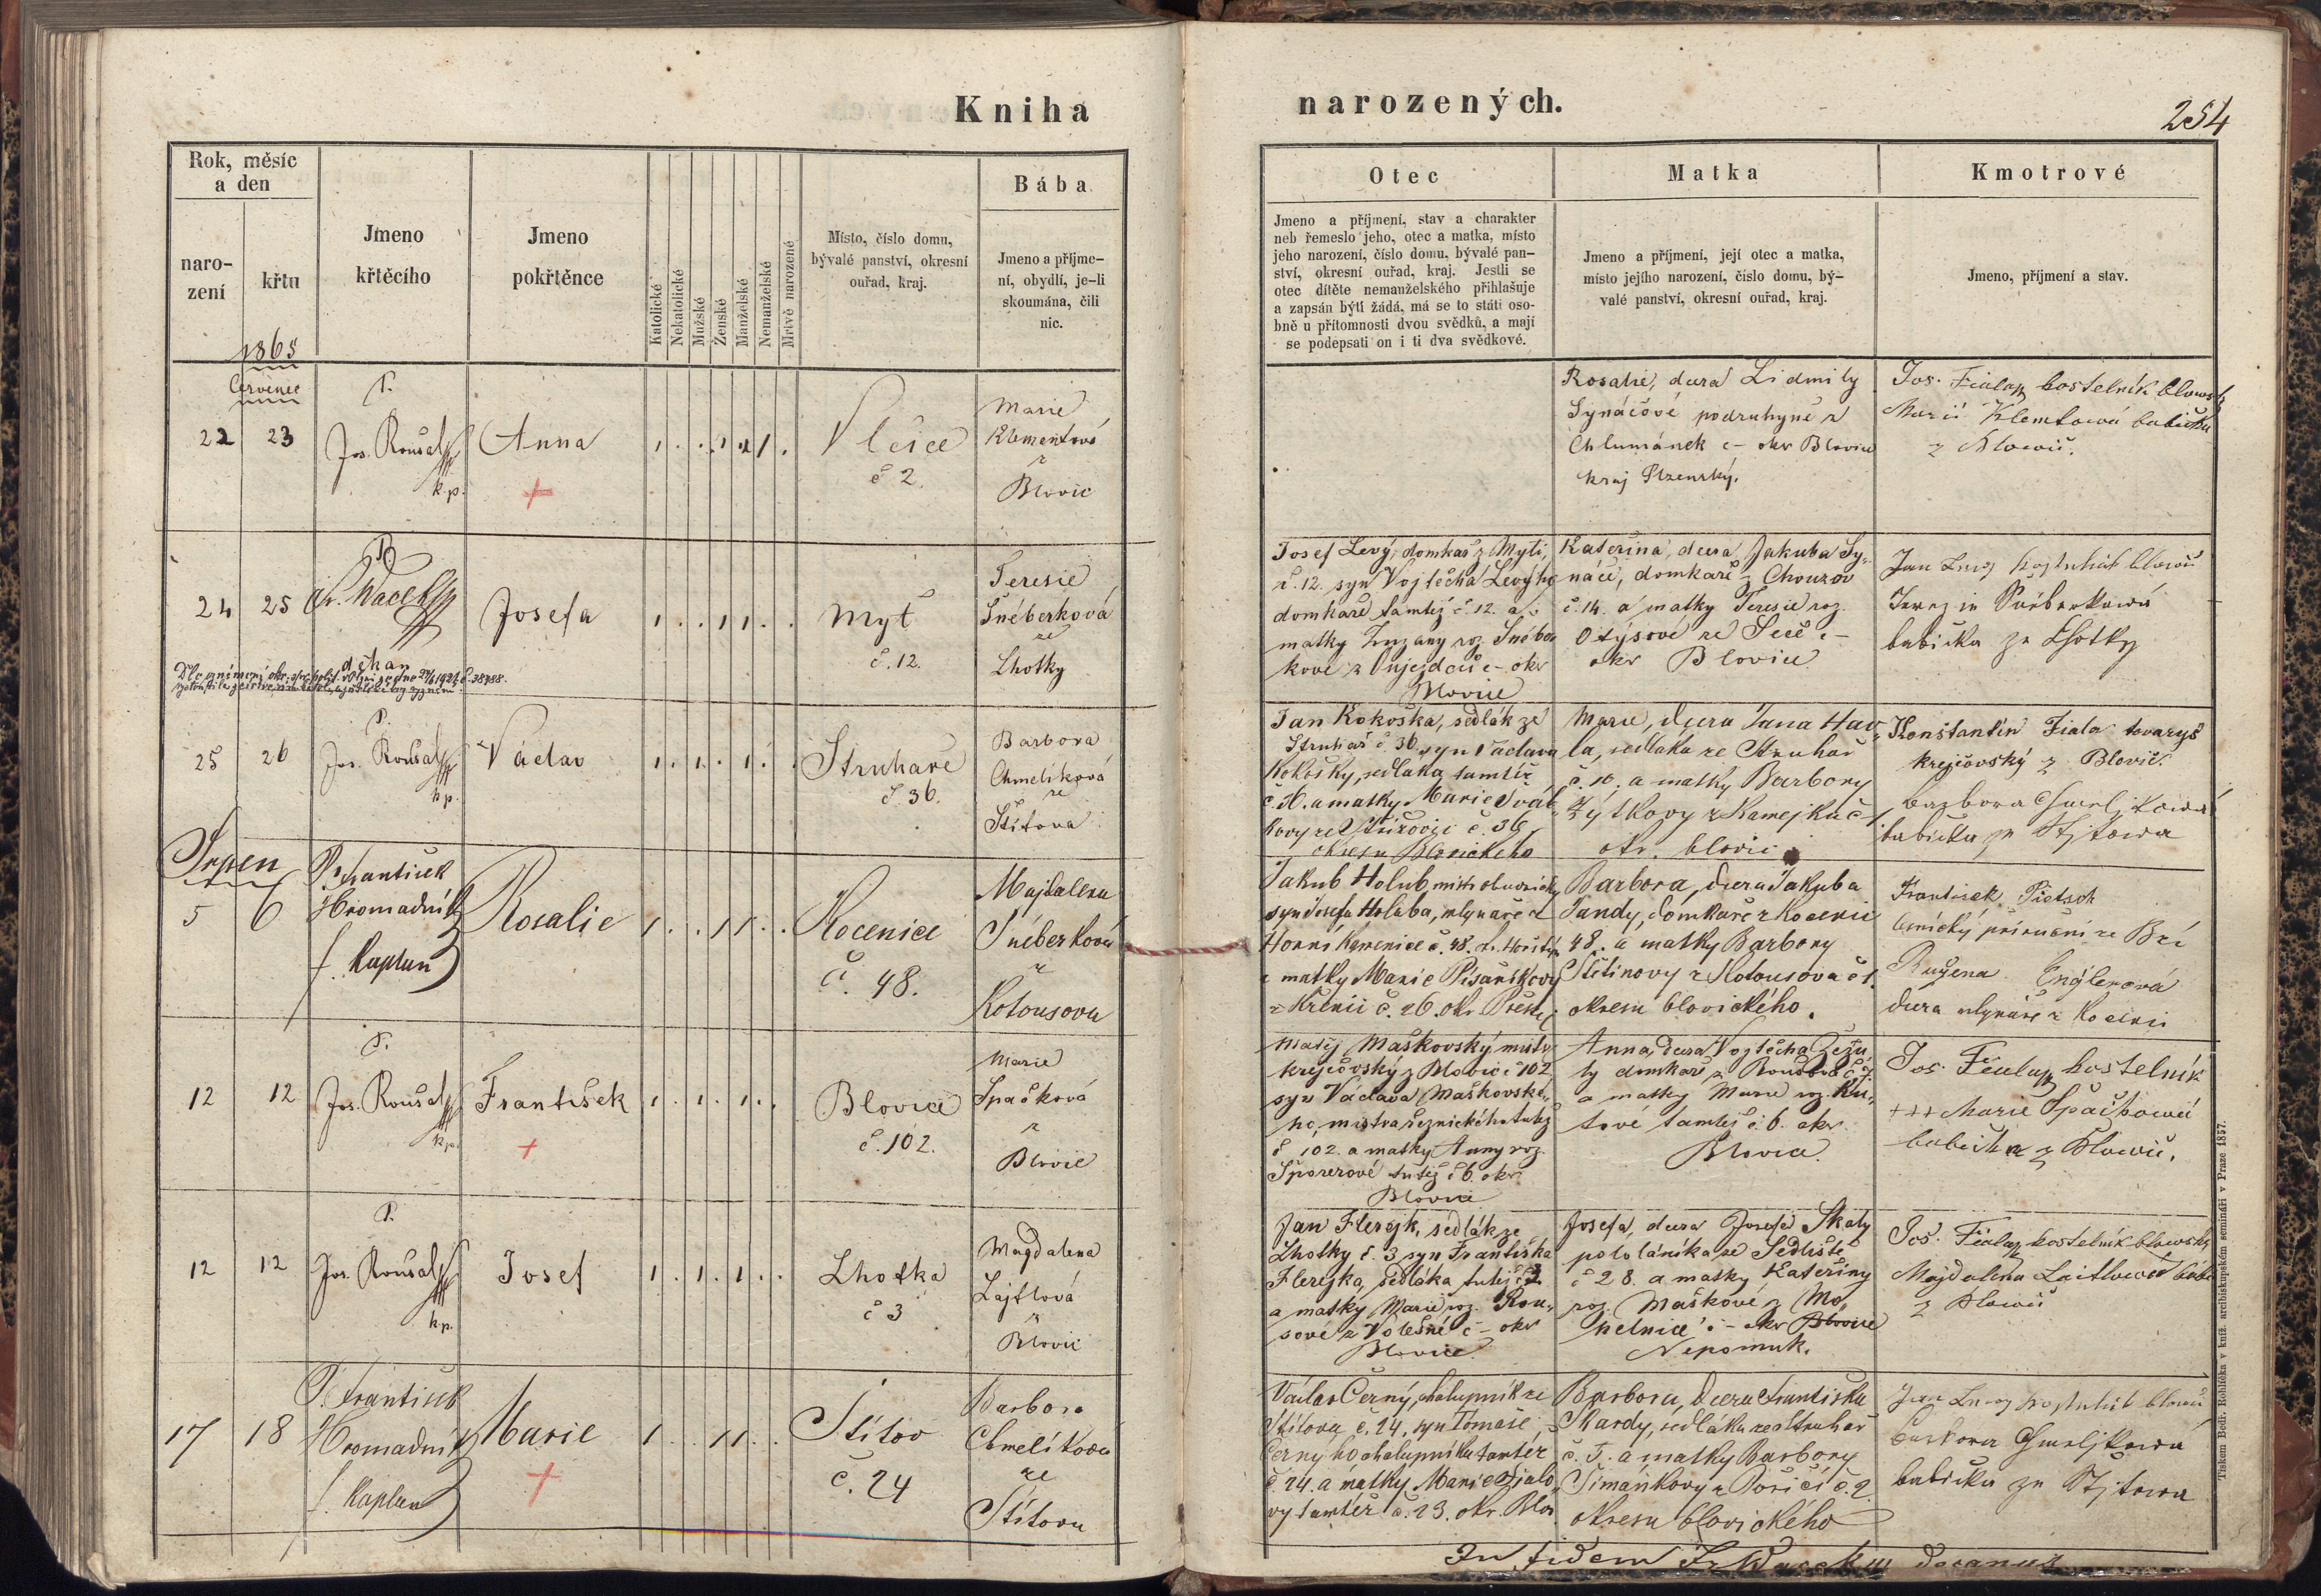 Kniha
narozených.
254
Rok, měsíc
a den
naro-
zení
křtu
Jmeno
křtěcího
Jmeno
pokřtěnce
Katolické
Nekatolické
Mužské
Ženské
Manželské
Nemanželské
Mrtvě narozené
Místo, číslo domu,
bývalé panství, okresní
ouřad, kraj.
Bába
Jmeno a příjme-
ní, obydlí, je-li
skoumána, čili
nic.
Otec
Jmeno a příjmení, stav a charakter
neb řemeslo jeho, otec a matka, místo
jeho narození, číslo domu, bývalé pan-
ství, okresní ouřad, kraj. Jestli se
otec dítěte nemanželského přihlašuje
a zapsán býti žádá, má se to státi oso-
bně u přítomnosti dvou svědků, a mají
se podepsati on i ti dva svědkové.
Matka
Jmeno a příjmení, její otec a matka,
místo jejího narození, číslo domu, bý-
valé panství, okresní ouřad, kraj.
Kmotrové
Jmeno, příjmení a stav.
1865
Červenec
22 23
P.
Jos. Roušal
k.p.
Anna
Vlčice
č 2.
Marie
Klementová
z
Blovic
Rosalie, dcera Lidmily
Synáčové podruhyně z
Chlumánek č – okr Blovice
kraj Plzenský.
Jos. Fiala kostelník
Marie Klemtová babička
z Blovic.
24 25
P.
Fr. Wacek
děkan
Josefa
Myť
č. 12.
Teresie
Šnéberková
ze
Lhotky
Josef Levý, domkař z Mytí,
č. 12. syn Vojtěcha Levýho
domkaře tamtéž č 12. a
matky Zuzany roz. Šnéber
kové z Oujezda č – okr
Blovice
Kateřina, dcera Jakuba Sy-
náče, domkaře z Chouzov
č. 14. a matky Teresie roz.
Otýsové ze Seče č –
okr Blovice
babička ze Lhotky
25 26
P.
Jos. Roušal
k.p.
Václav
Struhaře
č. 36.
Barbora
Chmelíková
ze
Štítova
Jan Kokoška, sedlák ze
Struhař č. 36. syn Václava
Kokošky, sedláka tamtéž
č. 36. a matky Marie
okresu Blovického
Marie, dcera Jana Hav-
la, sedláka ze Struhař
č. 10. a matky Barbory
Zýtkovy z Kamejka č
okr. blovic
Konstantin Fiala tovaryš
krejčovský z Blovic.
babička ze Stjtowa
Srpen
5 6
P. František
Hromadník
Kaplan
Rosalie
Kocenice
č. 48.
Majdalena
Šnéberková
z
Kotousova
Jakub Holub, mistr
syn Josefa Holuba, mlynáře z
Horní Kamenice č. 48.
a matky Marie Písaříkovy
z Křenic č. 26. okr. Přeštic
Barbora, dcera Jakuba
Jandy, domkaře z Kocenic
48. a matky Barbory
Štětinovy z Kotousova č 1.
okresu blovického.
František Pietsch
Růžena Englerová
dcera mlynáře z Kocenic
12 12
P.
Jos. Roušal
k.p.
František
Blovice
č. 102.
Marie
Špačková
z
Blovic
Matěj Maškovský, mistr
krejčovský z Blovic č 102
syn Václava Maškovské-
ho, mistra řeznického tutéž
č 102. a matky Anny roz.
Šporerové tutéž č 6. okr
Blovice
Anna, dcera Vojtěcha
domkaře z
a matky Marie roz. Ku-
tové tamtéž č. 6. okr.
Blovice.
Jos. Fiala kostelník
+++ Marie Špačková
babička z Blowic.
12 12
P.
Jos. Roušal
k.p.
Josef
Lhotka
č 3
Magdalena
Lajtlová
z
Blovic
Jan Flerejk, sedlák ze
Lhotky č. 3 syn Františka
Flerejka, sedláka tutéž č 3
a matky Marie roz. Rou-
sové z Volešné č – okr
Blovice.
Josefa, dcera Josefa Skaly
pololáníka ze Sedliště
č 28. a matky Kateřiny
roz. Maškové z Mo-
helnice č – okr Blovice
Nepomuk.
Jos. Fiala kostelník blowský
Majdalena Laitlowá
z Blowic
17 18
P. František
Hromadník
Kaplan
Marie
Štítov
č. 24
Barbora
Chmelíkova
ze
Štítova
Václav Černý, chalupník ze
Štítova č. 24, syn Tomáše
Černýho chalupníka tamtéž
č. 24. a matky Marie
tamtéž č. 23. okr. Blov
Barbora, dcera Františka
Skardy, sedláka ze Struhař
č. 5. a matky Barbory
Šimánkovy z Poříčí č. 2
okresu blovického
babička ze Stjtowa
In fidem Fr. Wacek decanus
Tiskem Bedř. Rohlíčka v kníž. arcibiskupském semináři v Praze 1857.